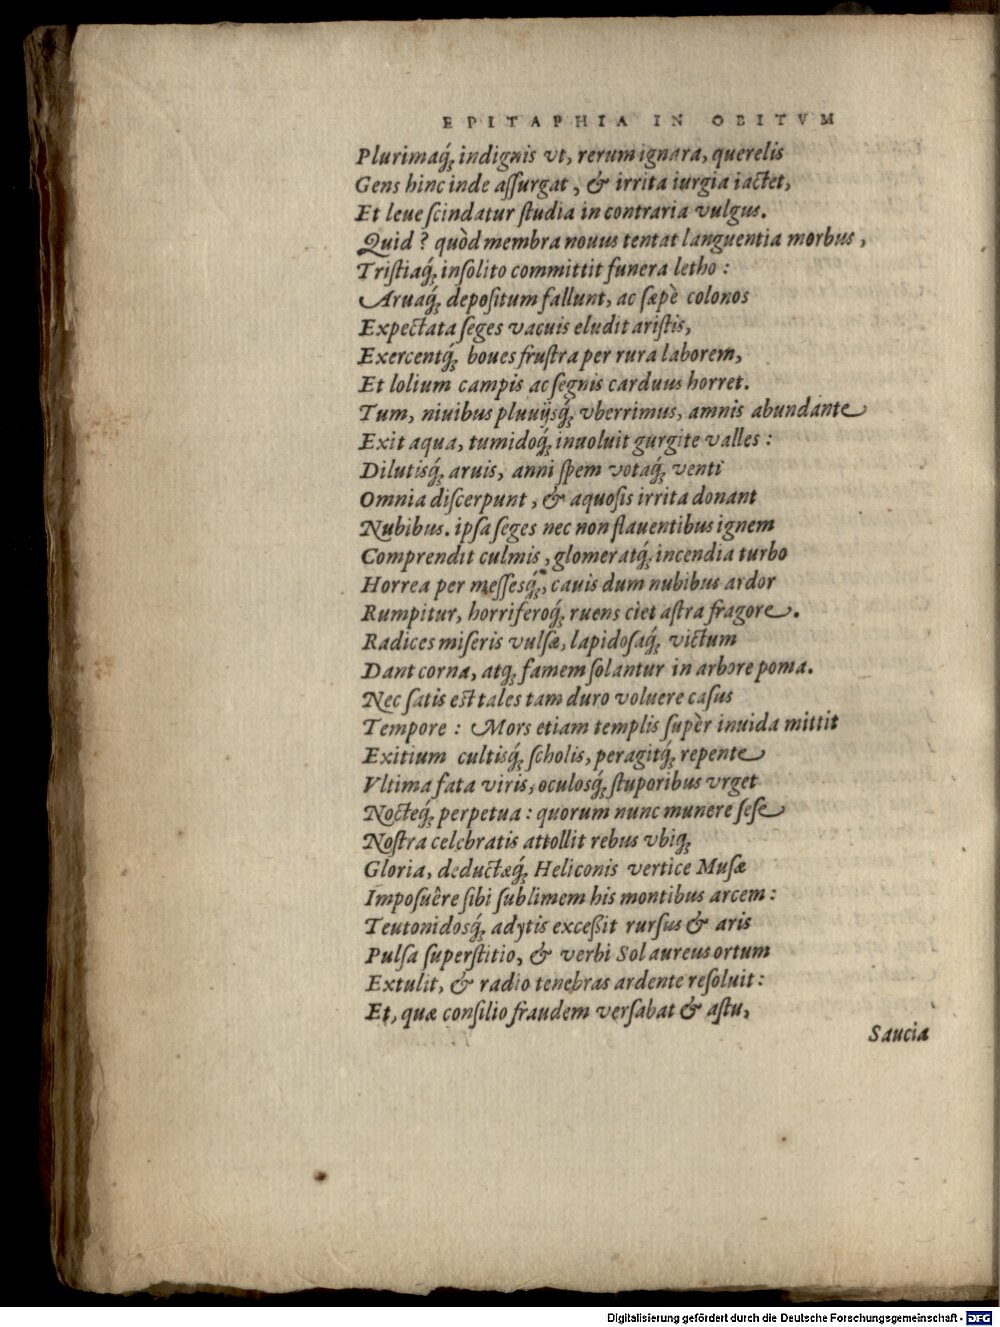 EPITAPHIA IN OBITVM
Plurimaq́; indignis vt, rerum ignara, querelis
Gens hinc inde aſſurgat, & irrita iurgia iactet,
Et leue ſcindatur ſtudia in contraria vulgus.
Quid? quòd membra nouus tentat languentia morbus,
Triſtiaq́; inſolito committit funera letho:
Aruaq́; depoſitum fallunt, ac ſæpè colonos
Expectata ſeges vacuis eludit ariſtis,
Exercentq́; boues fruſtra per rura laborem,
Et lolium campis ac ſegnis carduus horret.
Tum, niuibus pluuijsq́; vberrimus, amnis abundante
Exit aqua, tumidoq́; inuoluit gurgite valles:
Dilutisq́; aruis, anni ſpem votaq́; venti
Omnia diſcerpunt, & aquoſis irrita donant
Nubibus. ipſa ſeges nec non flauentibus ignem
Comprendit culmis, glomeratq́; incendia turbo
Horrea per meſſesq́;, cauis dum nubibus ardor
Rumpitur, horriferoq́; ruens ciet aſtra fragore.
Radices miſeris vulſæ, lapidoſaq́; victum
Dant corna, atq; famem ſolantur in arbore poma.
Nec ſatis eſt tales tam duro voluere caſus
Tempore: Mors etiam templis ſupèr inuida mittit
Exitium cultisq́; ſcholis, peragitq́; repente
Vltima fata viris, oculosq́; ſtuporibus vrget
Nocteq́; perpetua: quorum nunc munere ſeſe
Noſtra celebratis attollit rebus vbiq;
Gloria, deductæq́; Heliconis vertice Muſæ
Impoſuêre ſibi ſublimem his montibus arcem:
Teutonidosq́; adytis exceßit rurſus & aris
Pulſa ſuperſtitio, & verbi Sol aureus ortum
Extulit, & radio tenebras ardente reſoluit:
Et, quæ conſilio fraudem verſabat & aſtu,
Saucia
Digitalisierung gefördert durch die Deutsche Forschungsgemeinschaft - DFG